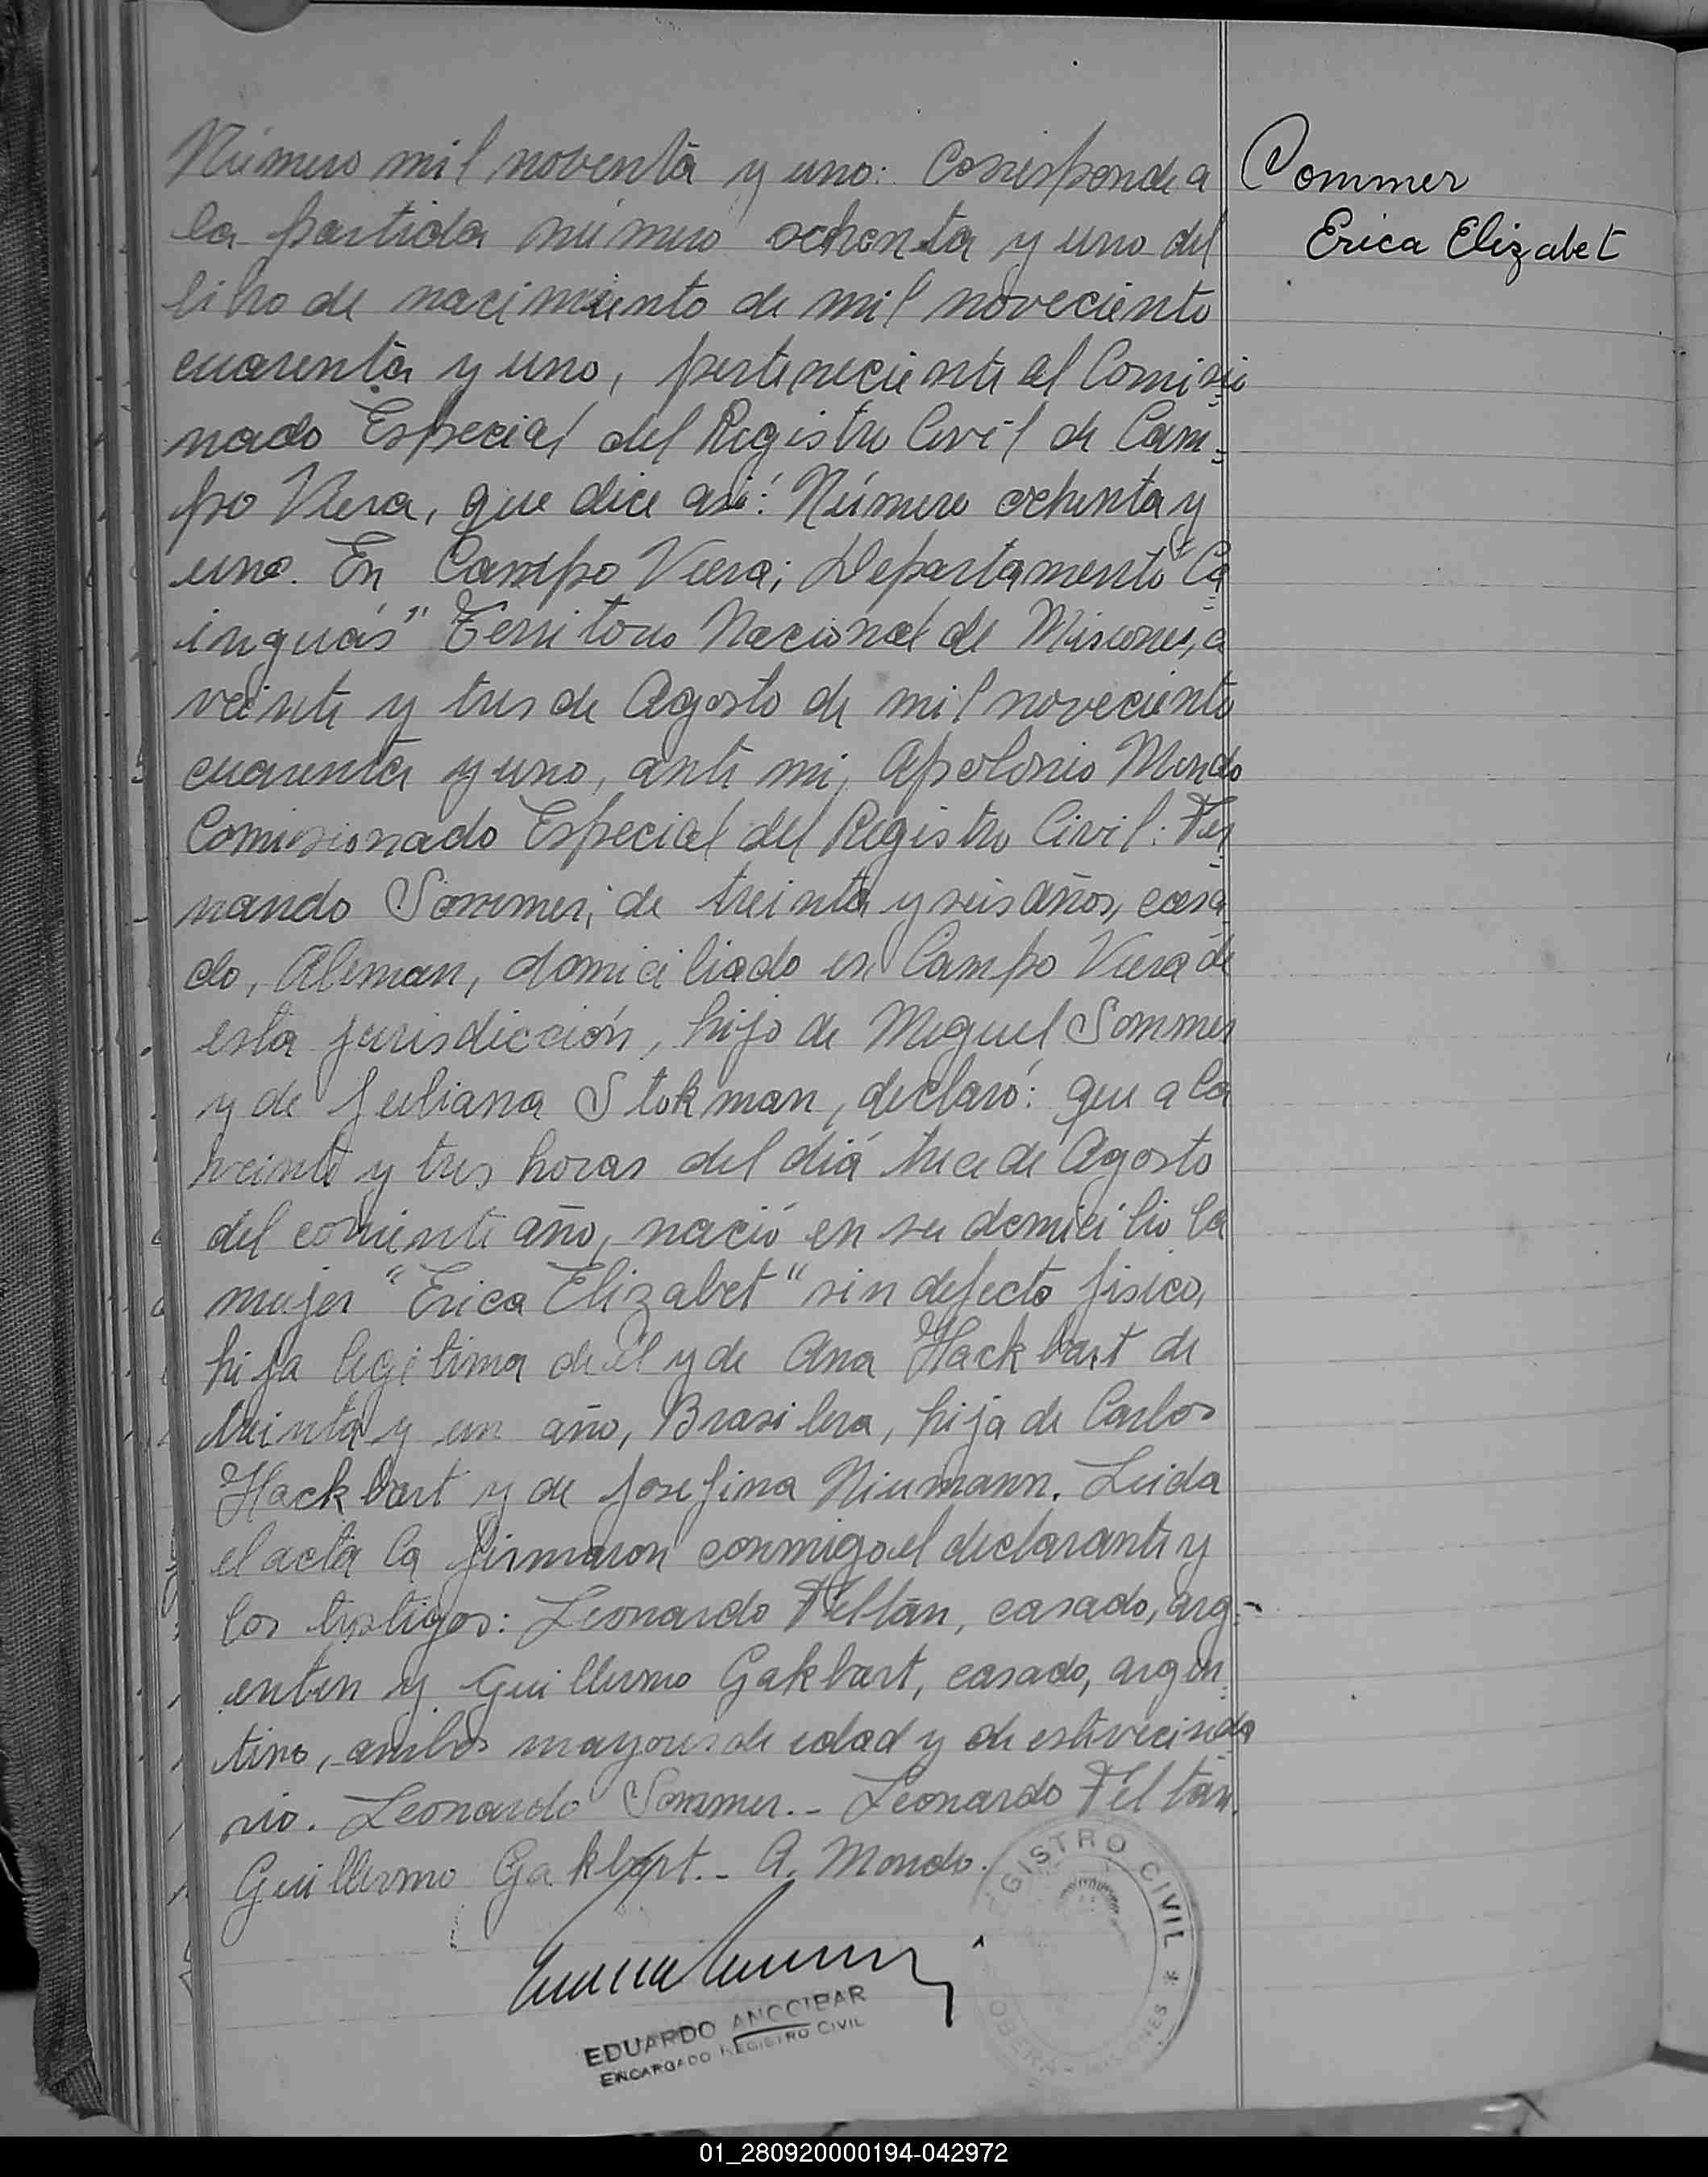 Número mil noventa y uno: Corresponde a
la partida número ochenta y uno del
libro de nacimiento de mil noveciento
cuarenta y uno, perteneciente al Comisio
nado Especial del Registro Civil de Cam=
po Viera, que dice así: Número ochenta y
uno. En Campo Viera; Departamento Ca
inguás" Territorio Nacional de Misiones, a
veinte y tres de Agosto de mil noveciento
cuarenta y uno, ante mi, Apolonio Mondo
Comisionado Especial del Registro Civil: Fer
nando Sommer, de treinta y seis años, casa
do, Aleman, domiciliado en Campo Viera de
esta jurisdicción, hijo de Miguel Sommer
y de Juliana Stokman, declaró: que a la
veinte y tres horas del diá trece de Agosto
del corriente año, nació en su domicilio la
mujer "Erica Elizabet" sin defecto fisico,
hija legitima de él y de Ana Hackbart de
treinta y un año, Brasilera, hija de Carlos
Hackbart y de Josefina Niumann. Leida
el acta la firmaron conmigo el declarante y
los testigos: Leonardo Feltán, casado, arg=
entin y Guillermo Gakbart, casado, argen
tino, ambos mayores de edad y de este vecinda
rio. Leonardo Sommer.- Leonardo Feltán.
Guillermo Gakbart.- A. Mondo.
Commer
Erica Elizabet
REGISTRO CIVIL *
OBERA - MISIONES
EDUARDO ANCCIBAR
ENCARGADO REGISTRO CIVIL
01_280920000194-042972